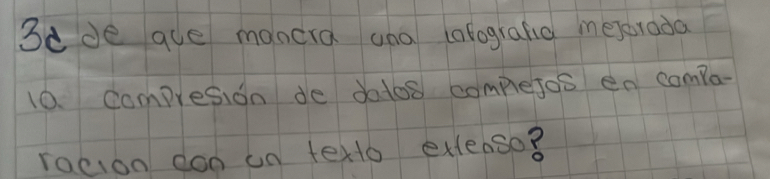 3¿ de que manera una infografia mejorada
la compresión de datos complejos en compa-
racion con un texto extenso?